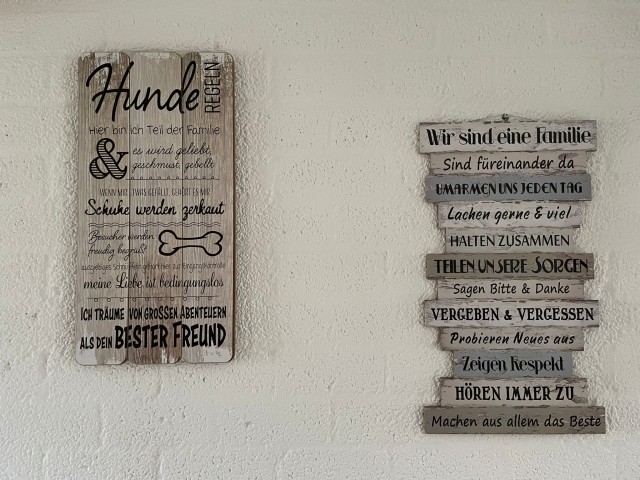 Hunde
REGELN
Hier bin ich Teil der Familie
& es wird geliebt,
geschmust, gebellt
WENN MIR ETWAS GEFÄLLT, GEHÖRT ES MIR
Schuhe werden zerkaut
Besucher werden
freudig begrüßt
ausgiebiges Schnüffeln gehört hier zur Eingangskontrolle
meine Liebe ist bedingungslos
ICH TRÄUME VON GROSSEN ABENTEUERN
ALS DEIN BESTER FREUND
Wir sind eine Familie
Sind füreinander da
UMARMEN UNS JEDEN TAG
Lachen gerne & viel
HALTEN ZUSAMMEN
TEILEN UNSERE SORGEN
Sagen Bitte & Danke
VERGEBEN & VERGESSEN
Probieren Neues aus
Zeigen Respekt
HÖREN IMMER ZU
Machen aus allem das Beste